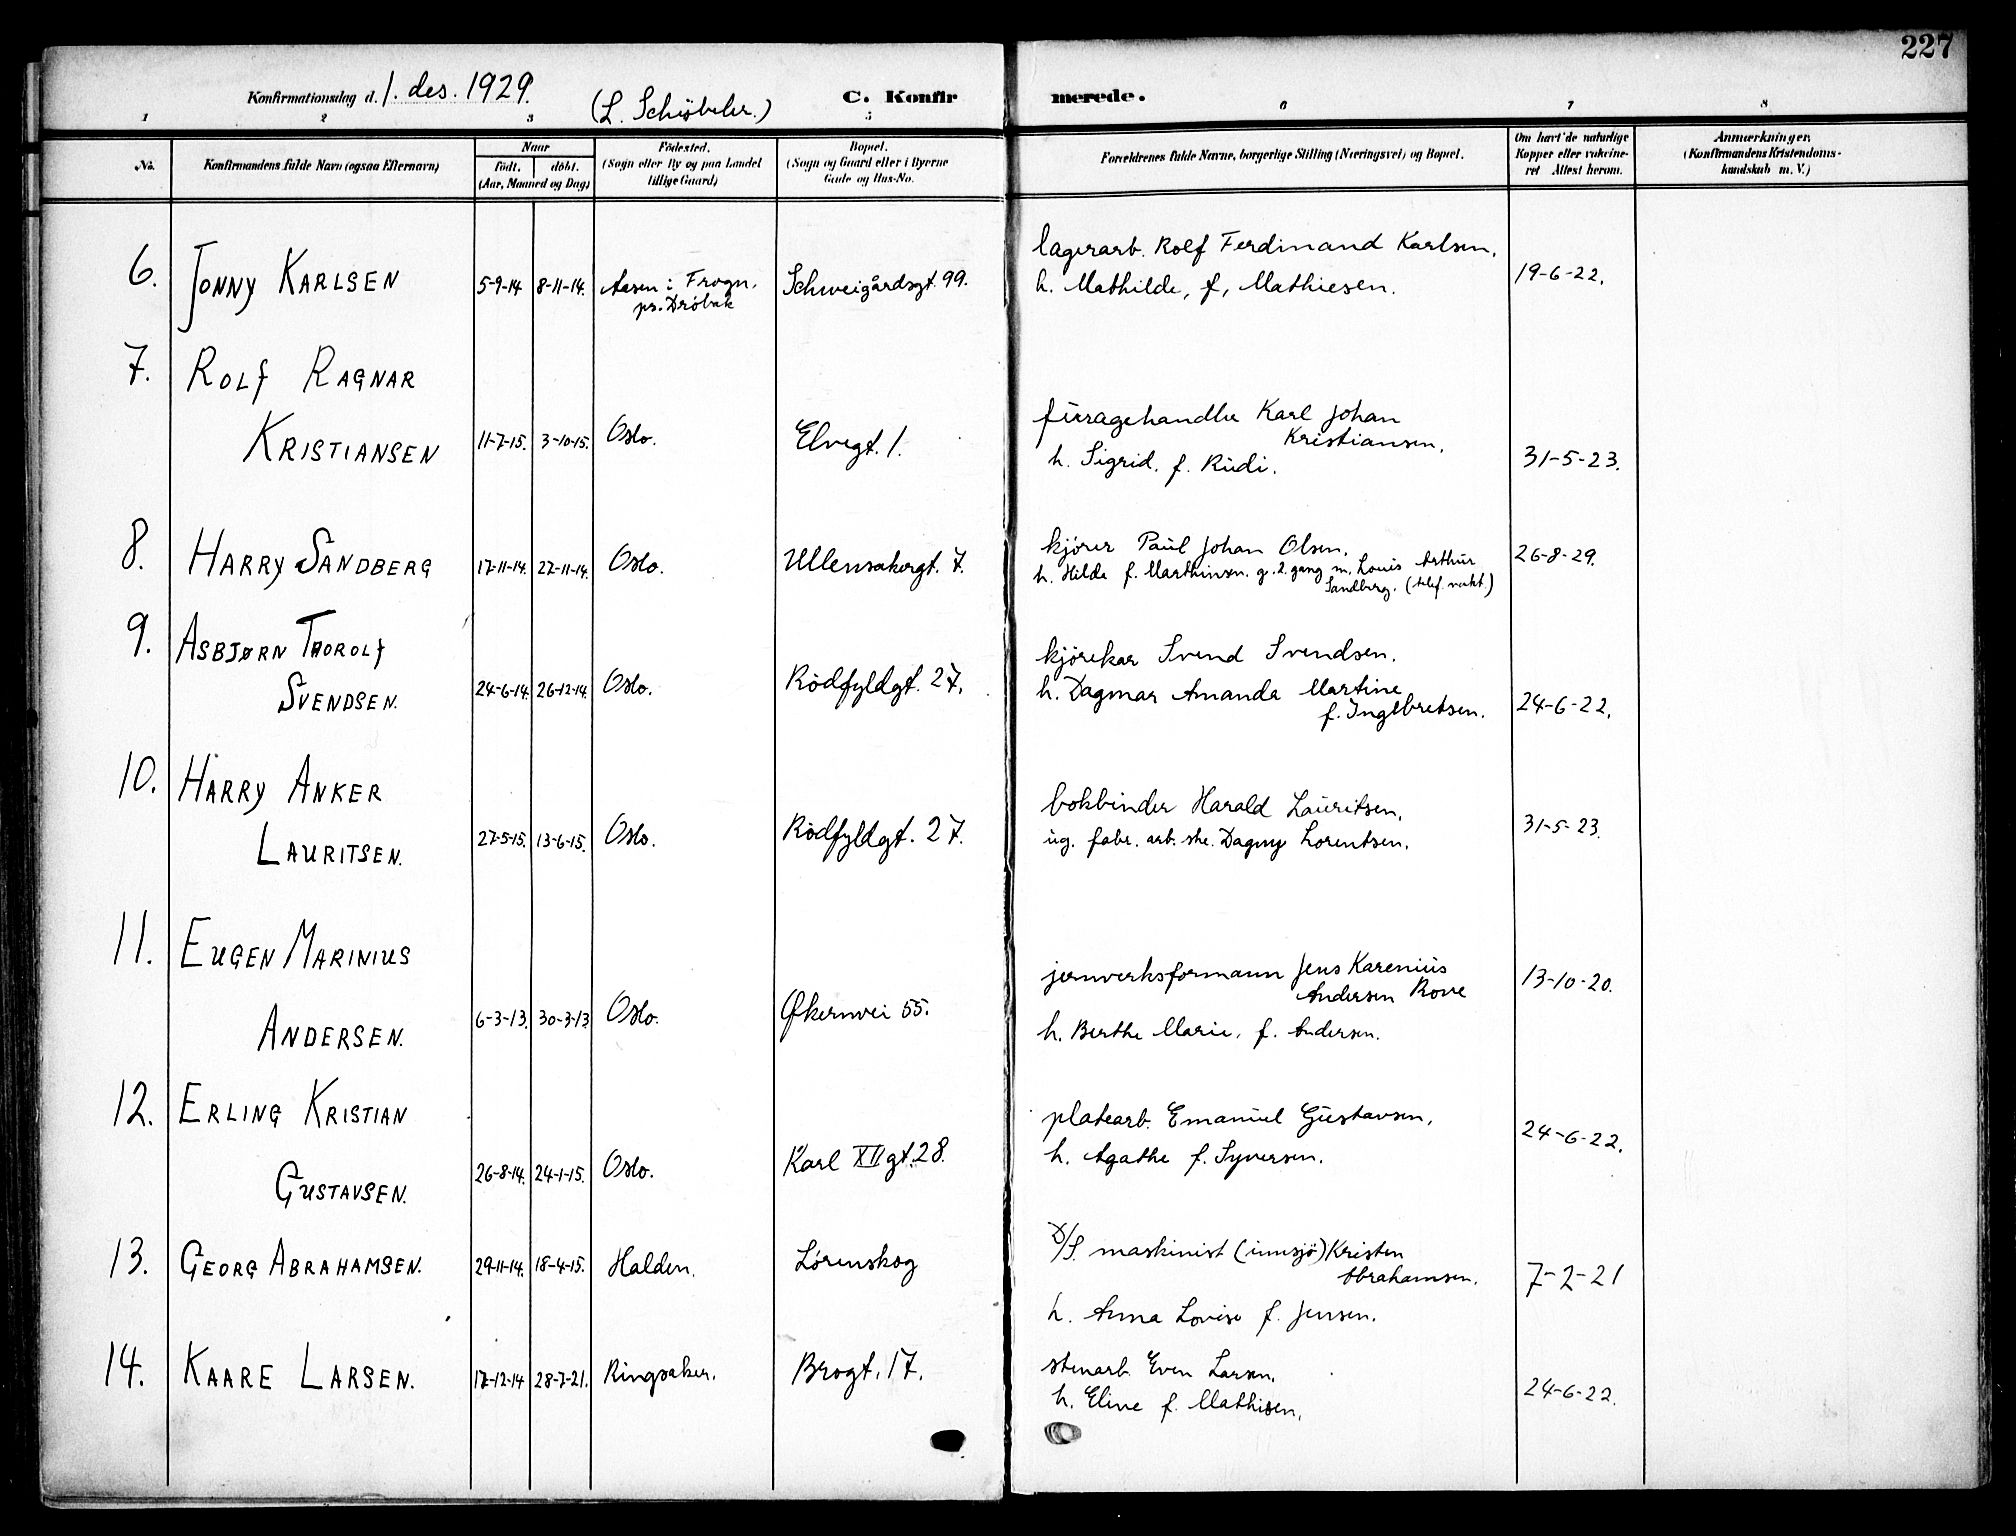 227
Konfirmationsdag d. 1. des. 1929. (L. Schiøbeler.) C. Konfirmerede.
1 2 3 5 6 7 8
No. Konfirmandens fulde Navn (ogsaa Efternavn) Naar Födested. Bopæl. Forældrenes fulde Navne, borgerlige Stilling (Næringsvei) og Bopæl. Om havt de naturlige Anmærkninger.
födt. döbt. (Sogn eller By og paa Landet (Sogn og Gaard eller i Byerne Kopper eller vakcine- (Konfirmandens Kristendoms-
(Aar, Maaned og Dag) tillige Gaard) Gade og Hus-No. ret Attest herom. kundskab m. V.)
6. JONNY KARLSEN 5-9-14 8-11-14. Aasen i Frogn, Schweigårdsgt. 99. lagerarb. Rolf Ferdinand Karlsen, 19-6-22.
pr. Drøbak h. Mathilde, f, Mathiesen.
7. ROLF RAGNAR
KRISTIANSEN 11-7-15. 3-10-15. Oslo. Elvegt. 1. furragehandler Karl Johan
Kristiansen,
h. Sigrid. f. Rudi. 31-5-23.
8. HARRY SANDBERG 17-11-14. 27-11-14. Oslo. Ullensakergt. 7. kjører Paul Johan Olsen, 26-8-29.
h. Hilda f. Marthinsen. g. 2. gang m. Louis Arthur
Sandberg. (telef. vakt.)
9. ASBJØRN THOROLF
SVENDSEN. 24-6-14. 26-12-14. Oslo. Rødfyldgt. 27. kjørekar Svend Svendsen.
h. Dagmar Amanda Martine
f. Ingebretsen. 24-6-22.
10. HARRY ANKER
LAURITSEN. 27-5-15. 13-6-15. Oslo. Rødfyldgt. 27. bokbinder Harald Lauritsen, 31-5-23.
ug. fabr. arb. ske. Dagny Lorentsen.
11. EUGEN MARINIUS
ANDERSEN. 6-3-13. 30-3-13 Oslo. Økernvei 55. jernverksformann Jens Karenius 13-10-20.
Andersen Rove
h. Berthe Marie, f. Andersen.
12. ERLING KRISTIAN
GUSTAVSEN. 26-8-14. 24-1-15. Oslo. Karl XII gt. 28. platearb. Emanuel Gustavsen, 24-6-22.
h. Agathe f. Syversen.
13. GEORG ABRAHAMSEN. 29-11-14. 18-4-15. Halden. Lørenskog D/S. maskinist (innsjø) Kristen
Abrahamsen. 7-2-21
h. Anna Lovise f. Jensen.
14. KAARE LARSEN. 17-12-14 28-7-21. Ringsaker. Brogt. 17. stenarb. Even Larsen,
h. Eline f. Mathisen. 24-6-22.